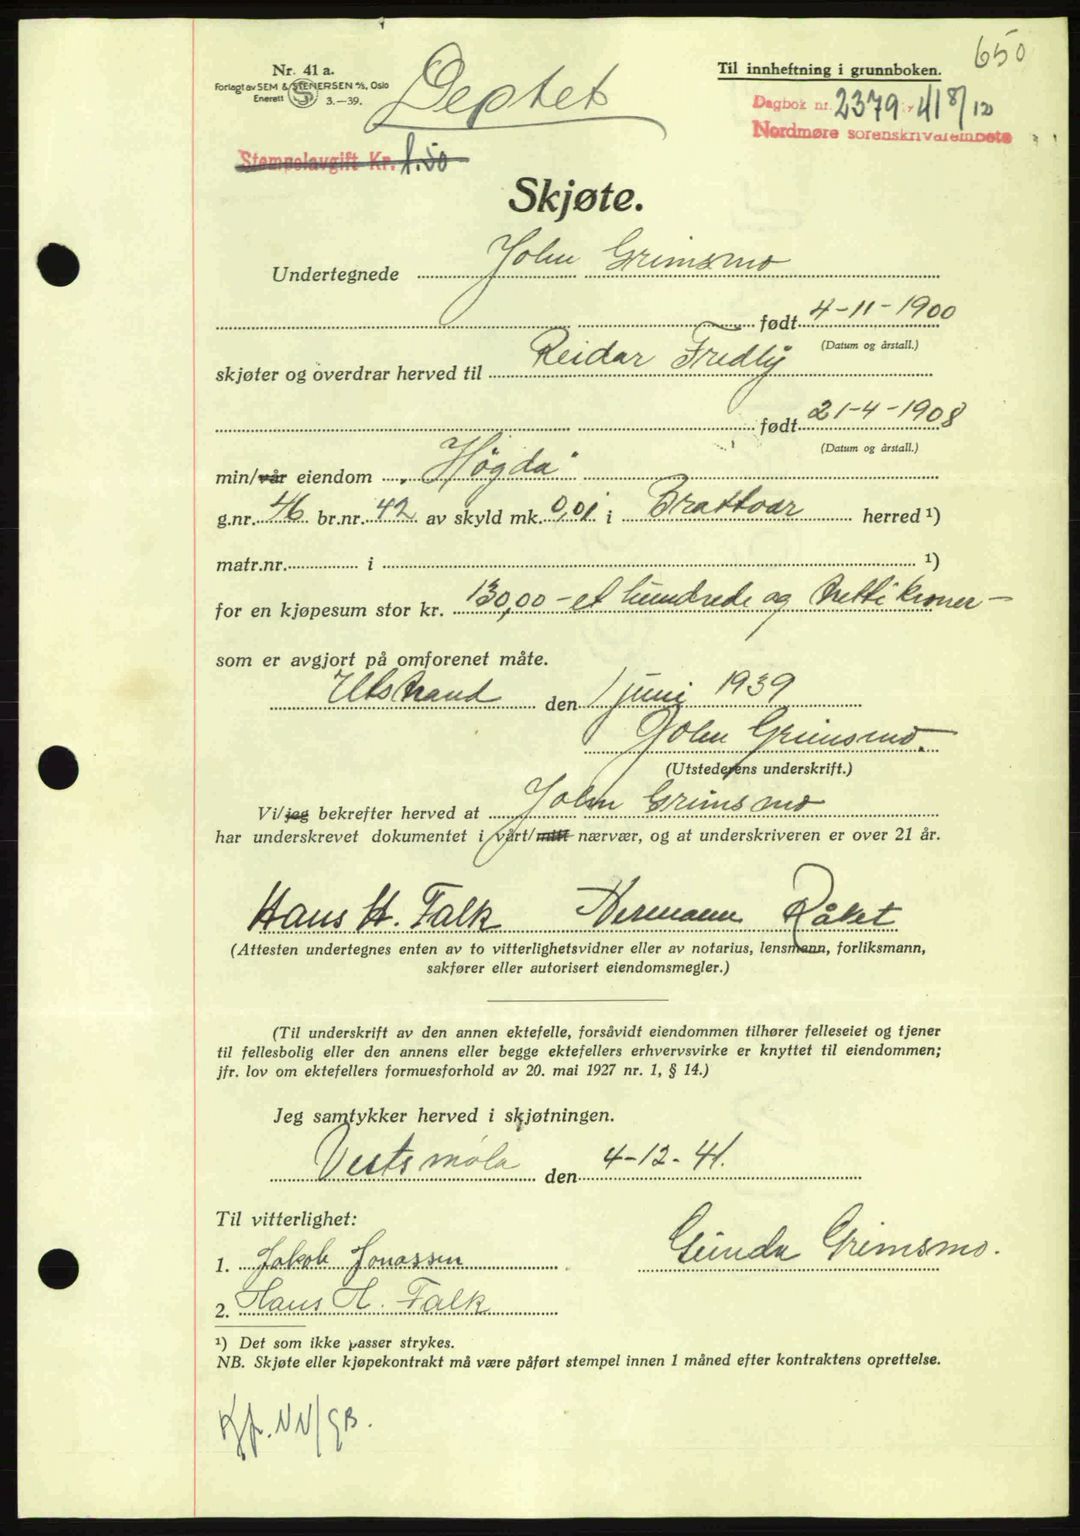 650
Nr. 41 a.
Forlagt av SEM & STENERSEN A/S, Oslo
Enerett 3.—39.
Til innheftning i grunnboken.
Dagbok nr. 2379 - 41 8/12
Nordmøre sorenskriverembete
Stempelavgift Kr. 1.50
Skjøte.
Undertegnede John Grimsmo
født 4-11-1900
(Datum og årstall.)
skjøter og overdrar herved til Reidar Fredly
født 21-4-1908
(Datum og årstall.)
min/vår eiendom „Høgda"
g.nr. 46 br.nr. 42 av skyld mk. 0,01 i Brattvær herred ¹)
matr.nr. i ¹)
for en kjøpesum stor kr. 130,00 - et hundrede og tretti kroner -
som er avgjort på omforenet måte.
den 1 juni 1939
John Grimsmo.
(Utstederens underskrift.)
Vi/jeg bekrefter herved at John Grimsmo
har underskrevet dokumentet i vårt/mitt nærvær, og at underskriveren er over 21 år.
Hans H. Falk Hermann Råket
(Attesten undertegnes enten av to vitterlighetsvidner eller av notarius, lensmann, forliksmann,
sakfører eller autorisert eiendomsmegler.)
(Til underskrift av den annen ektefelle, forsåvidt eiendommen tilhører felleseiet og tjener
til fellesbolig eller den annens eller begge ektefellers erhvervsvirke er knyttet til eiendommen;
jfr. lov om ektefellers formuesforhold av 20. mai 1927 nr. 1, § 14.)
Jeg samtykker herved i skjøtningen.
Vestsmøla den 4-12-41.
Til vitterlighet:
Gunda Grimsmo.
1. Jakob Jonassen
2. Hans H. Falk
¹) Det som ikke passer strykes.
NB. Skjøte eller kjøpekontrakt må være påført stempel innen 1 måned efter kontraktens oprettelse.
Kf. NN/GB.